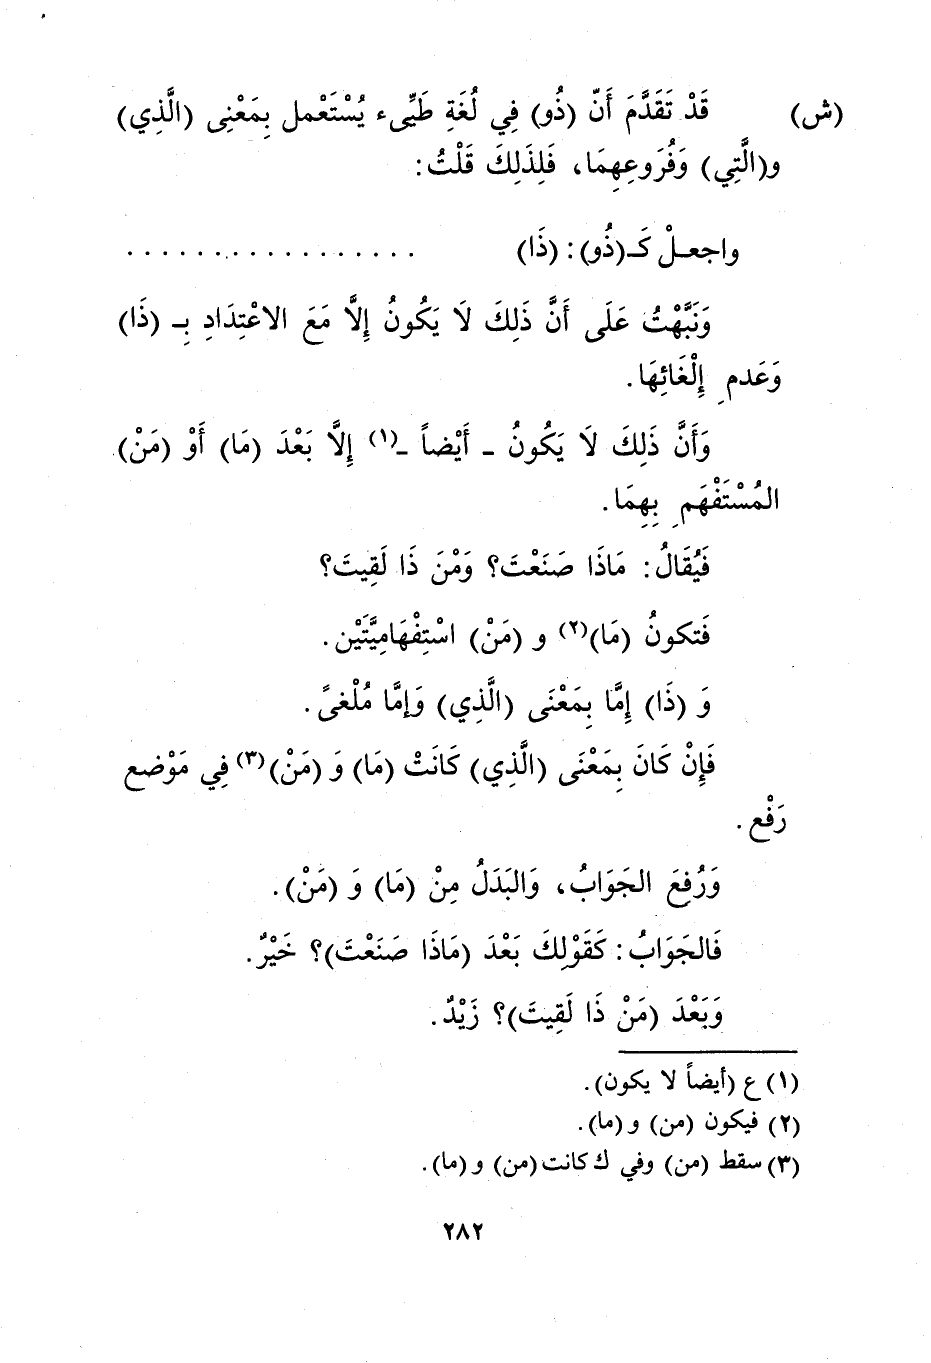 (ش) قَدْ تَقَدَّمَ أَنّ (ذُو) فِي لُغَةِ طَيِّىء يُسْتَعْمل بِمَعْنِى (الَّذِي)
و(الَّتِي) وَفُرَوعِهِمَا، فَلِذَلِكَ قَلْتُ:
واجعـلْ كَـ(ذُو): (ذَا) . . . . . . . . . . . . . . . . .
وَنَبَّهْتُ عَلَى أَنَّ ذَلِكَ لَا يَكُونُ إِلَّا مَعَ الاعْتِدَادِ بِـ (ذَا)
وَعَدمِ إِلْغَائِهَا.
وَأَنَّ ذَلِكَ لَا يَكُونُ ـ أَيْضاً ـ(١) إِلَّا بَعْدَ (مَا) أَوْ (مَنْ)
المُسْتَفْهَمِ بِهِمَا.
فَيُقَالُ: مَاذَا صَنَعْتَ؟ وَمْنَ ذَا لَقِيتَ؟
فَتكونُ (مَا)(٢) و (مَنْ) اسْتِفْهَامِيَّتَيْن.
وَ (ذَا) إِمَّا بِمَعْنَى (الَّذِي) وَإِمَّا مُلْغىً.
فَإِنْ كَانَ بِمَعْنَى (الَّذِي) كَانَتْ (مَا) وَ (مَنْ)(٣) فِي مَوْضع
رَفْع.
وَرُفِعَ الجَوَابُ، وَالبَدَلُ مِنْ (مَا) وَ (مَنْ).
فَالجَوَابُ: كَقَوْلِكَ بَعْدَ (مَاذَا صَنَعْتَ)؟ خَيْرٌ.
وَبَعْدَ (مَنْ ذَا لَقِيتَ)؟ زَيْدٌ.
(١) ع (أيضاً لا يكون).
(٢) فيكون (من) و (ما).
(٣) سقط (من) وفي ك كانت (من) و (ما).
٢٨٢